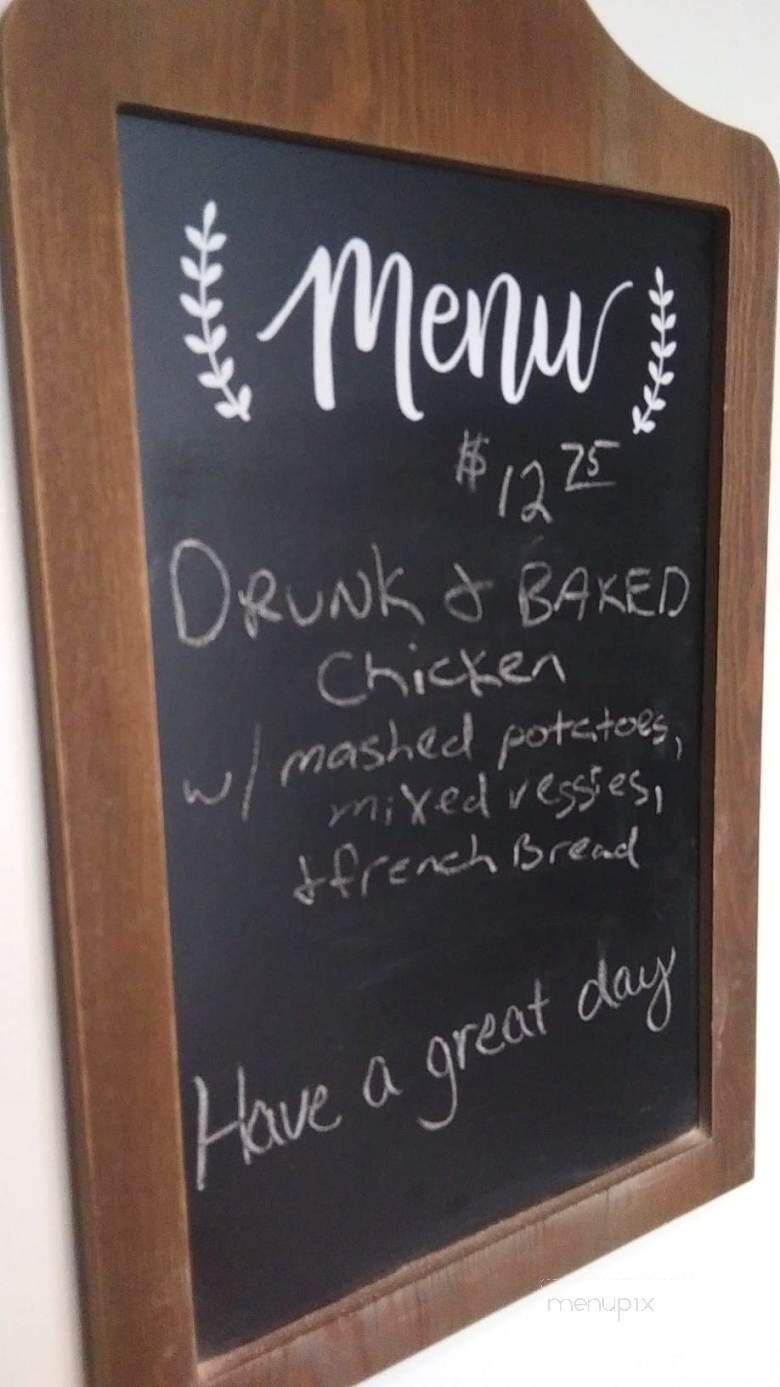 Menu
$12 75
DRUNK & BAKED
Chicken
w/ mashed potatoes,
mixed veggies,
& french Bread
Have a great day
menupix